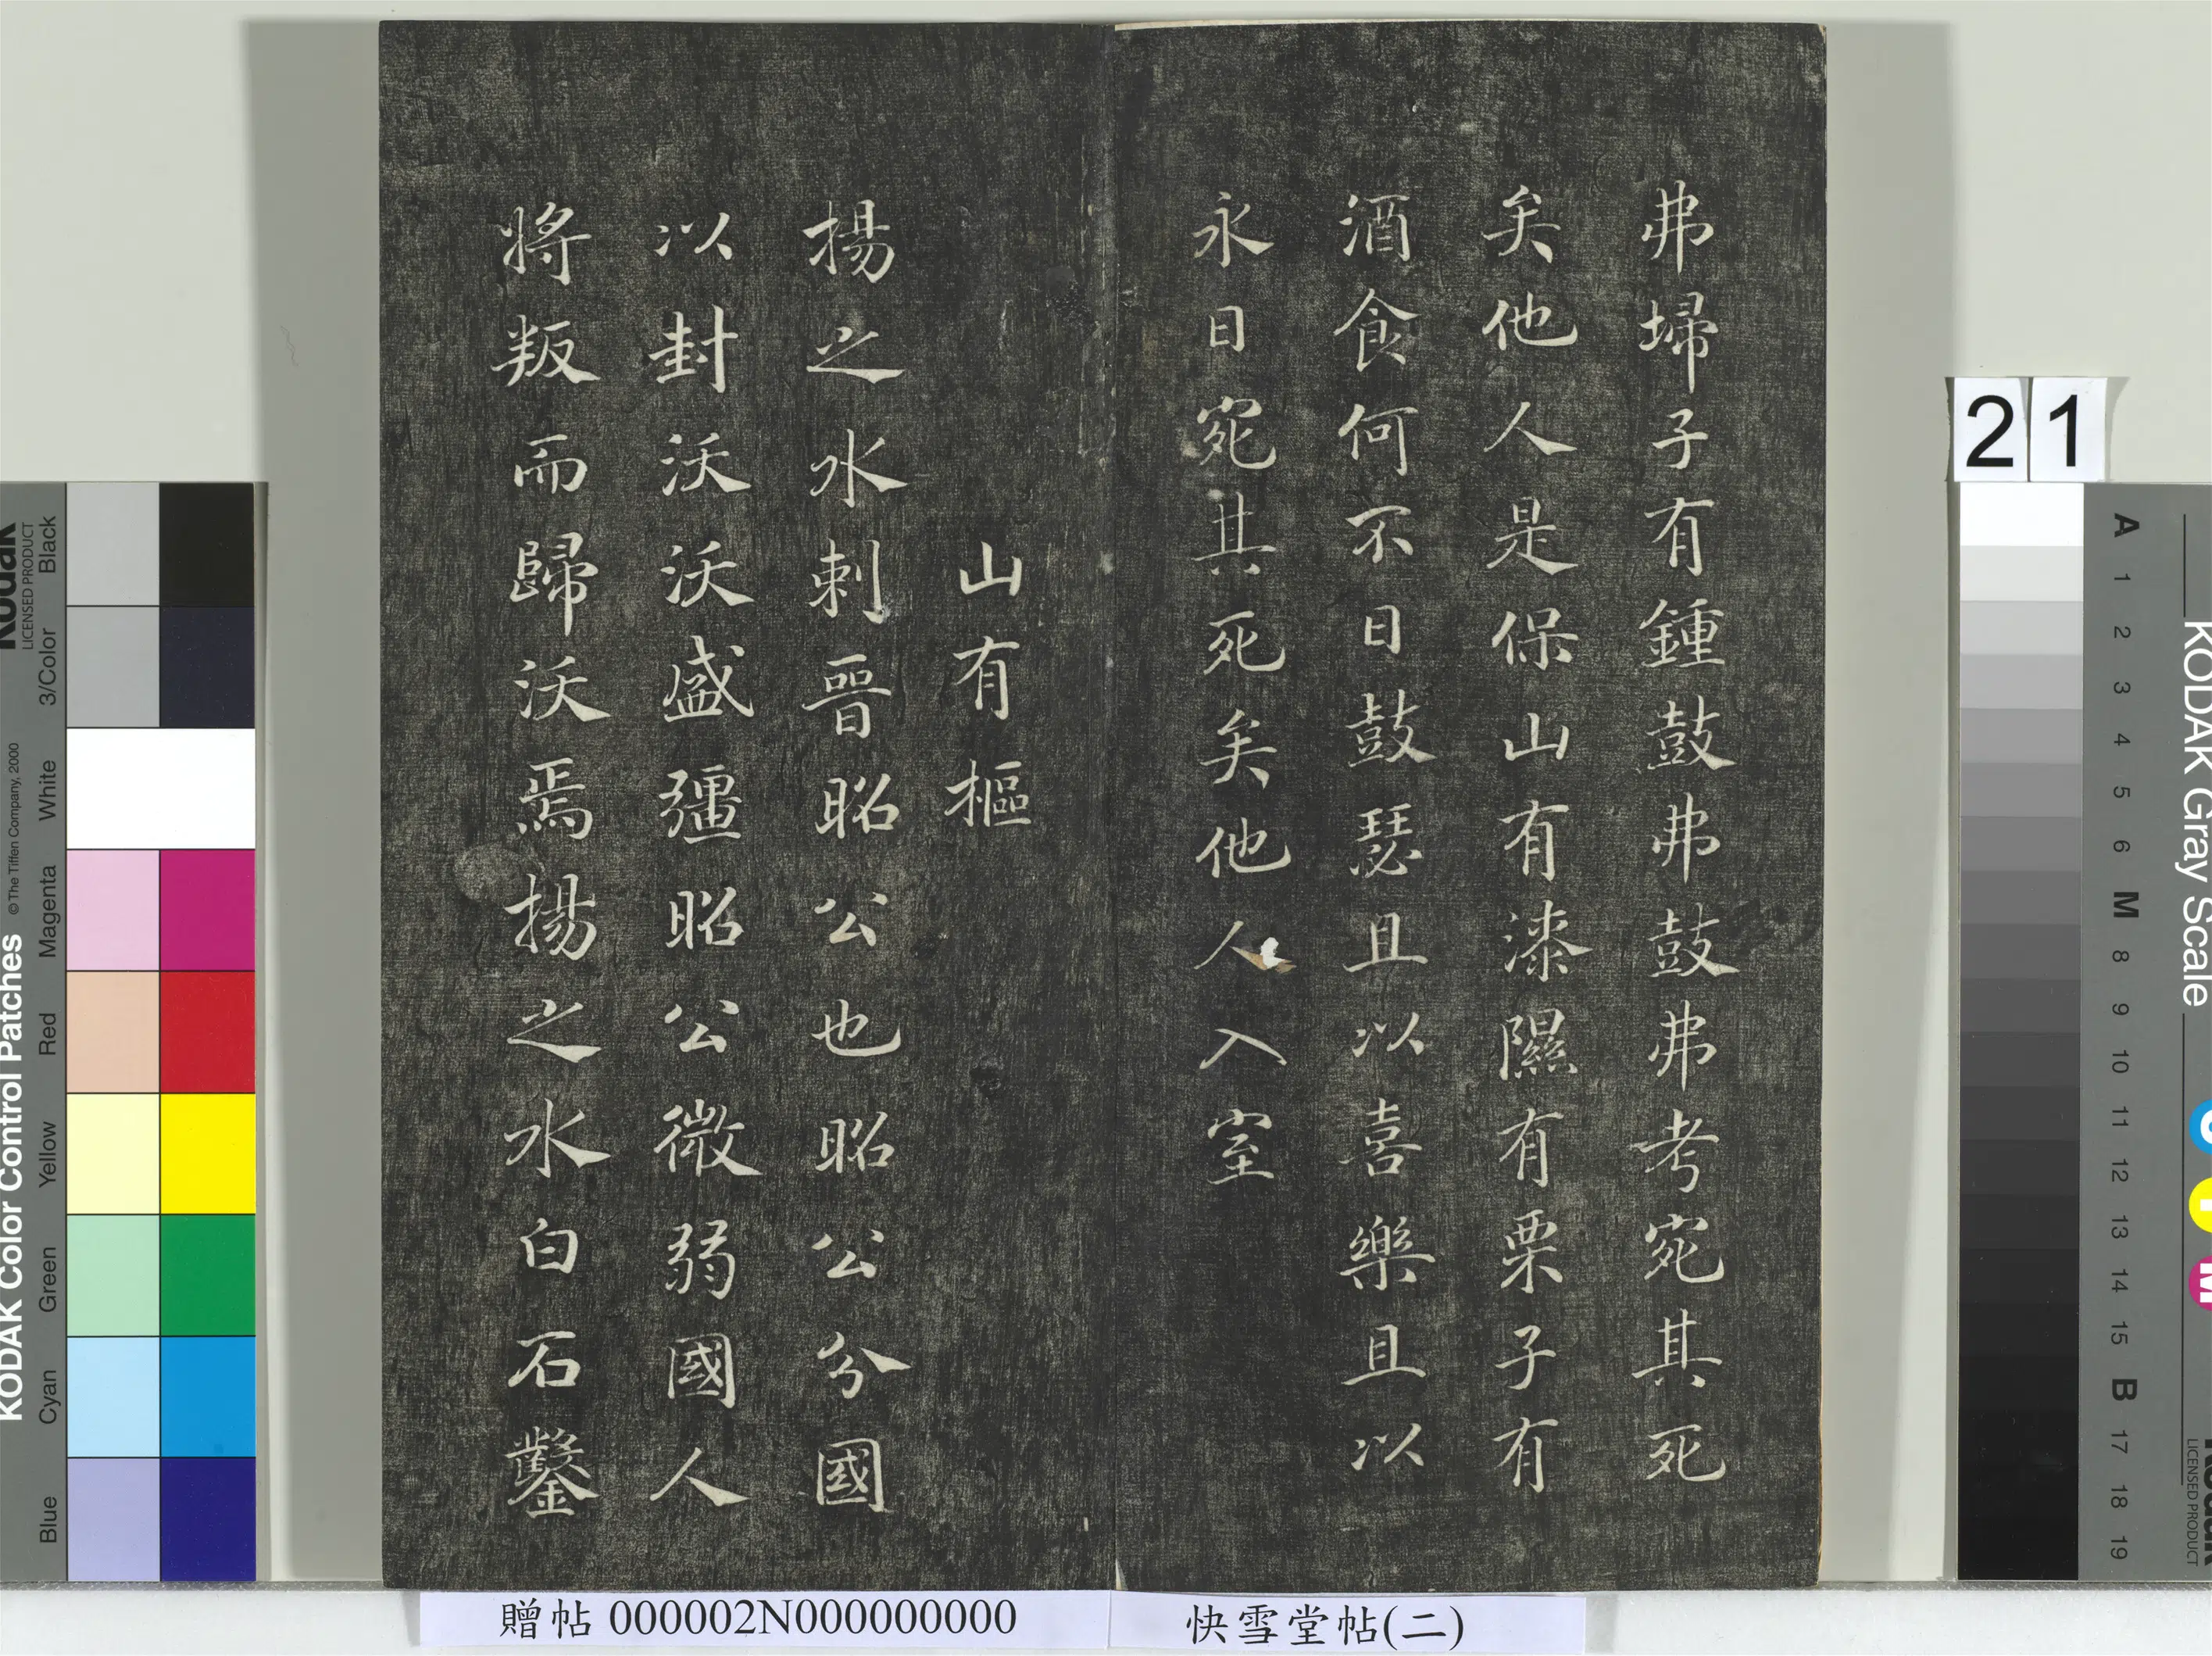 弗埽子有鍾鼓弗鼓弗考宛其死
矣他人是保山有漆隰有栗子有
酒食何不日鼓瑟且以喜樂且以
永日宛其死矣他人入室
山有樞
揚之水刺晉昭公也昭公分國
以封沃沃盛彊昭公微弱國人
將叛而歸沃焉揚之水白石鑿
21
贈帖 000002N000000000
快雪堂帖(二)
Kodak
LICENSED PRODUCT
KODAK Color Control Patches
© The Tiffen Company, 2000
Blue Cyan Green Yellow Red Magenta White 3/Color Black
KODAK Gray Scale
A 1 2 3 4 5 6 M 8 9 10 11 12 13 14 15 B 17 18 19
C
Y
M
Kodak
LICENSED PRODUCT